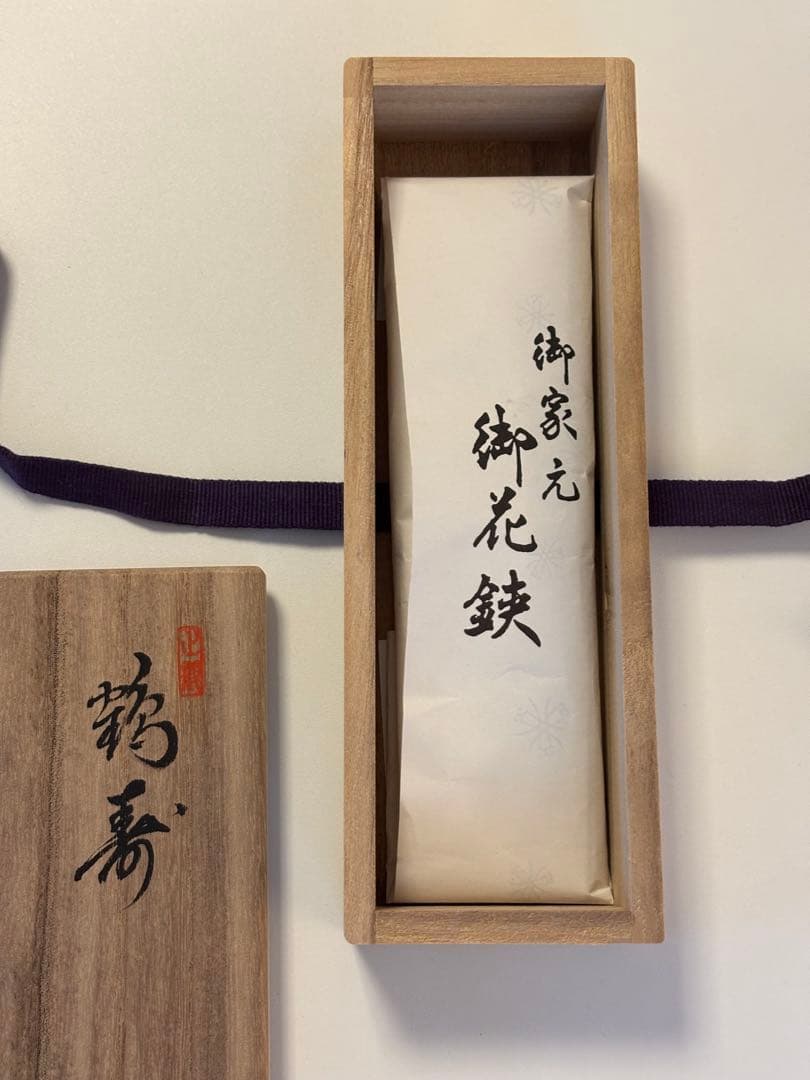 御家元
御花鋏
鶴寿